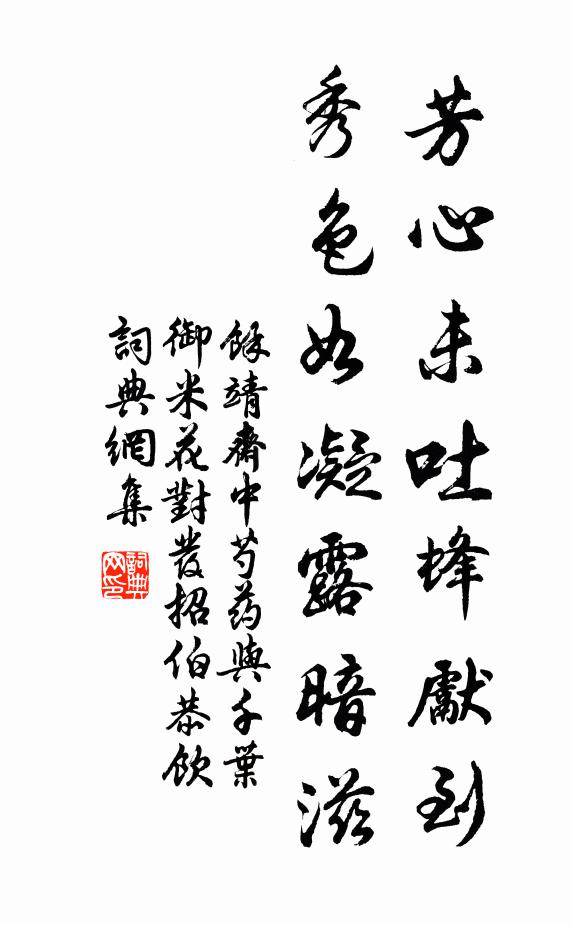 芳心未吐蜂獻到
秀色如凝露暗滋
餘靖齋中芍药與千葉
御米花對發招伯恭飲
詞典網集
詞典网印